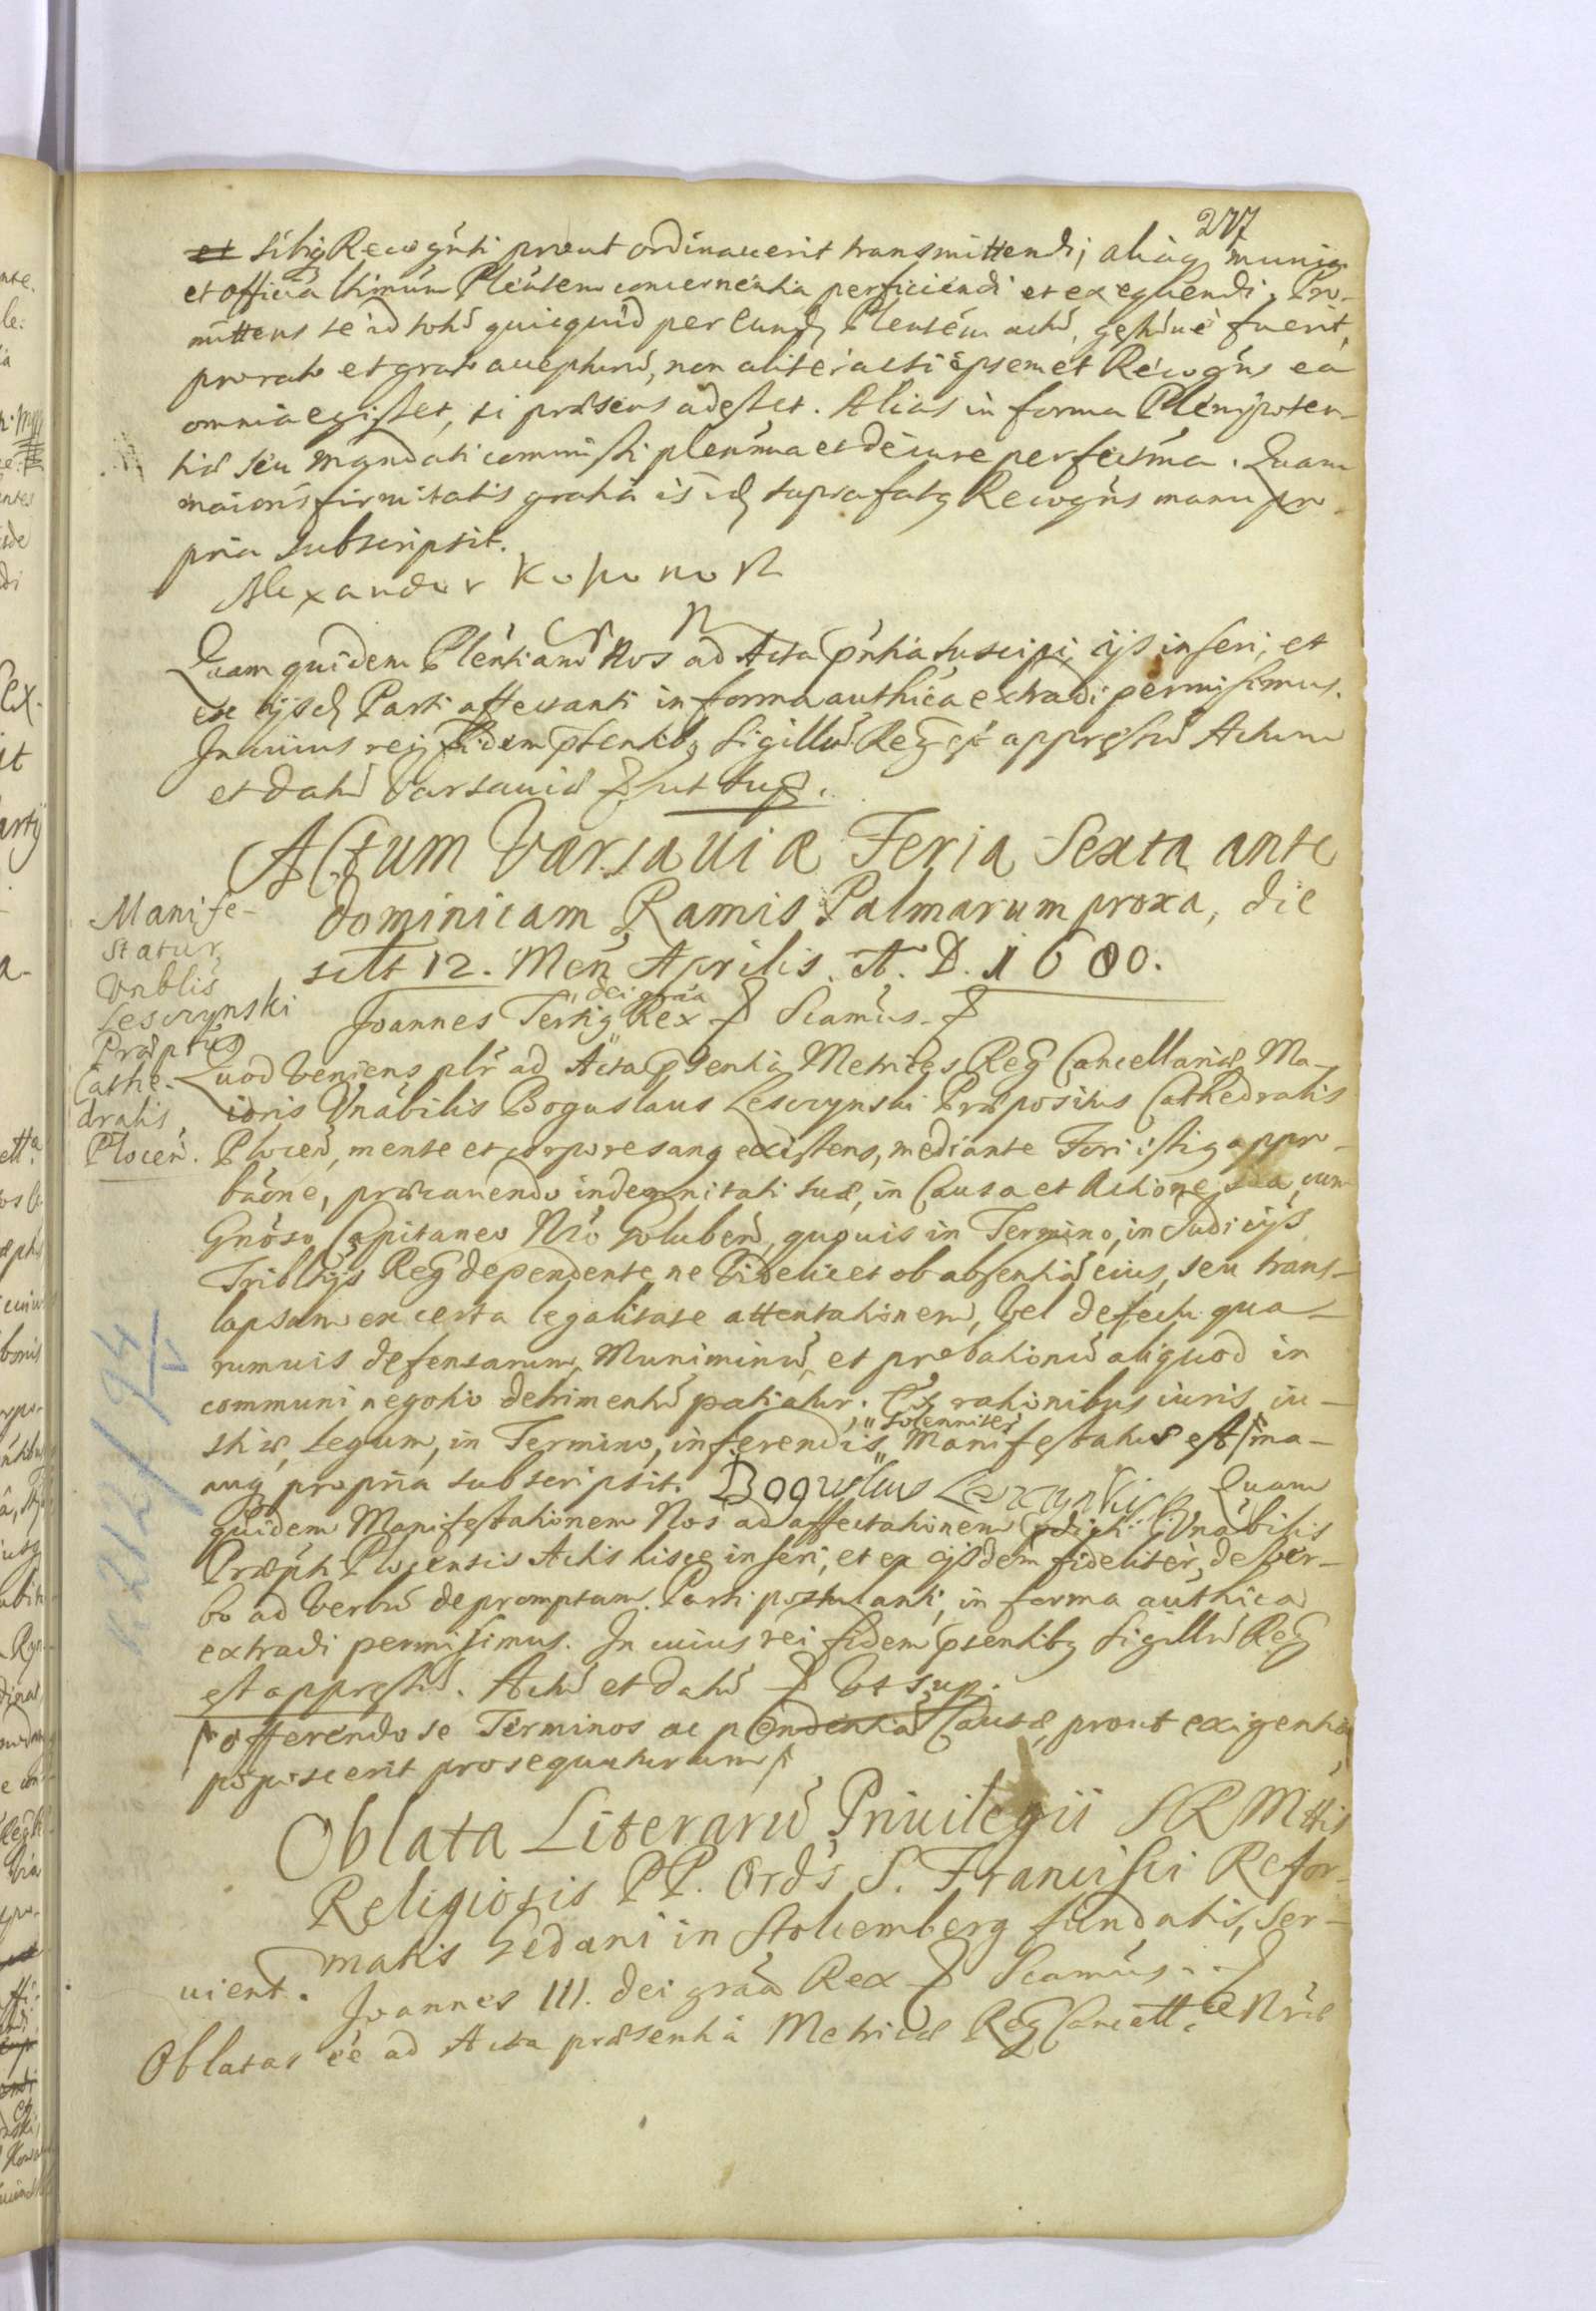 277
et sibiq Recogn̄ti prout ordinauerit transmittendi, aliaq munia
et officia Plen̄tem concernentia perficiendi et exequendi. Pro-
mittens se id totū quicquid per eund Plen̄tem actū, gestūue fuerit,
pro rato et grato accepturū, non aliter ac si ipsemet Recogn̄s ea
omnia egisset, si præsens adesset. Alias in forma Plenipoten-
tiæ seu Mandati commissi pleniss̄ma et de iure perfectiss̄ma. Quam
maioris firmitatis gratia is id suprafatq Recogn̄s manu pro-
pria subscripsit.
Alexander
Quam quidem Plen̄tiam Nos ad Acta p̄ntia suscipi, ijs inseri, et
ex ijsd Parti affectanti in forma auth̄ica extradi permisimus.
In cuius rei fidem p̄sentibq Sigillū Reg est appressū Actum
et datū Varsauiæ ut sup.
Actum Varsauiæ Feria Sexta ante
Dominicam Ramis Palmarum proxa, die
silt 12. Men Aprilis. A. D. 1680.
Manife-
statur
Vnblis
Lesczynski
Præptus
Cathe-
dralis
Plocen.
Dei gr̄a
Joannes Tertiq Rex Sc̄amus
Quod veniens pl̄r ad Acta p̄sentia Metrices Reg Cancellariæ Ma-
ioris Vn̄abilis Boguslaus Lesczynski Præpositus Cathedralis
Plocen, mente et corpore sanq existens, mediante Fori istiq appro-
ba̅one, præcauendo indemnitati suæ, in Causa et Actione sua, cum
Gn̄oso Capitaneo Nr̄o Goluben, quouis in Termino, in Judicijs
Tribl̄ijs Reg dependente, ne videlicet ob absentiā eius, seu trans-
lapsam ex certa legalitate attentationem, vel defectu qua-
rumuis defensarum, Muniminū, et probationū aliquod in
communi negotio detrimentū patiatur. rationibus iuris, iu-
stitiæ, Legum, in Termino, inferendis, solenniter Manifestatus est ma-
nuq propria subscripsit. Boguslaus Lesczynski Quam
quidem Manifestationem Nos ad affectationem Vn̄abilis
Præpti Plocensis Actis hisce inseri, et ex ijsdem fideliter, de ver-
bo ad verbū depromptam Parti postulanti, in forma auth̄ica
extradi permisimus. In cuius rei fidem p̄sentibq Sigillū Reg
est appressū. Actū et datū ut sup.
offerendo se Terminos ac p̄endentiā Causæ, prout exigentia
poposcerit prosequuturum
Oblata Literarū Priuilegii SRMttis
Religiosis PP. Ord̄s S. Francisci Refor-
matis Gedani in Stolcemberg fundatis, ser-
uient.
Joannes III. Dei gra̅a Rex Sc̄amus
Oblatas e̅e ad Acta præsentia Metricæ Reg Cancell̄æ Nr̄æ